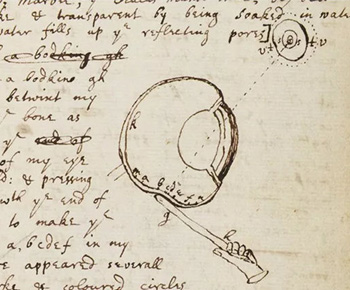 & transparent by being soaked in water
water fills up yᵉ reflecting pores]
a bodking gh
a bodkine gh
betwixt my
yᵉ bone as
yᵉ end of
of my eye
& pressing
wᵗʰ yᵉ end of
to make yᵉ
a, bcdef in my
appeared severall
& coloured circles
v s t v
k
a b c d e f
g
h